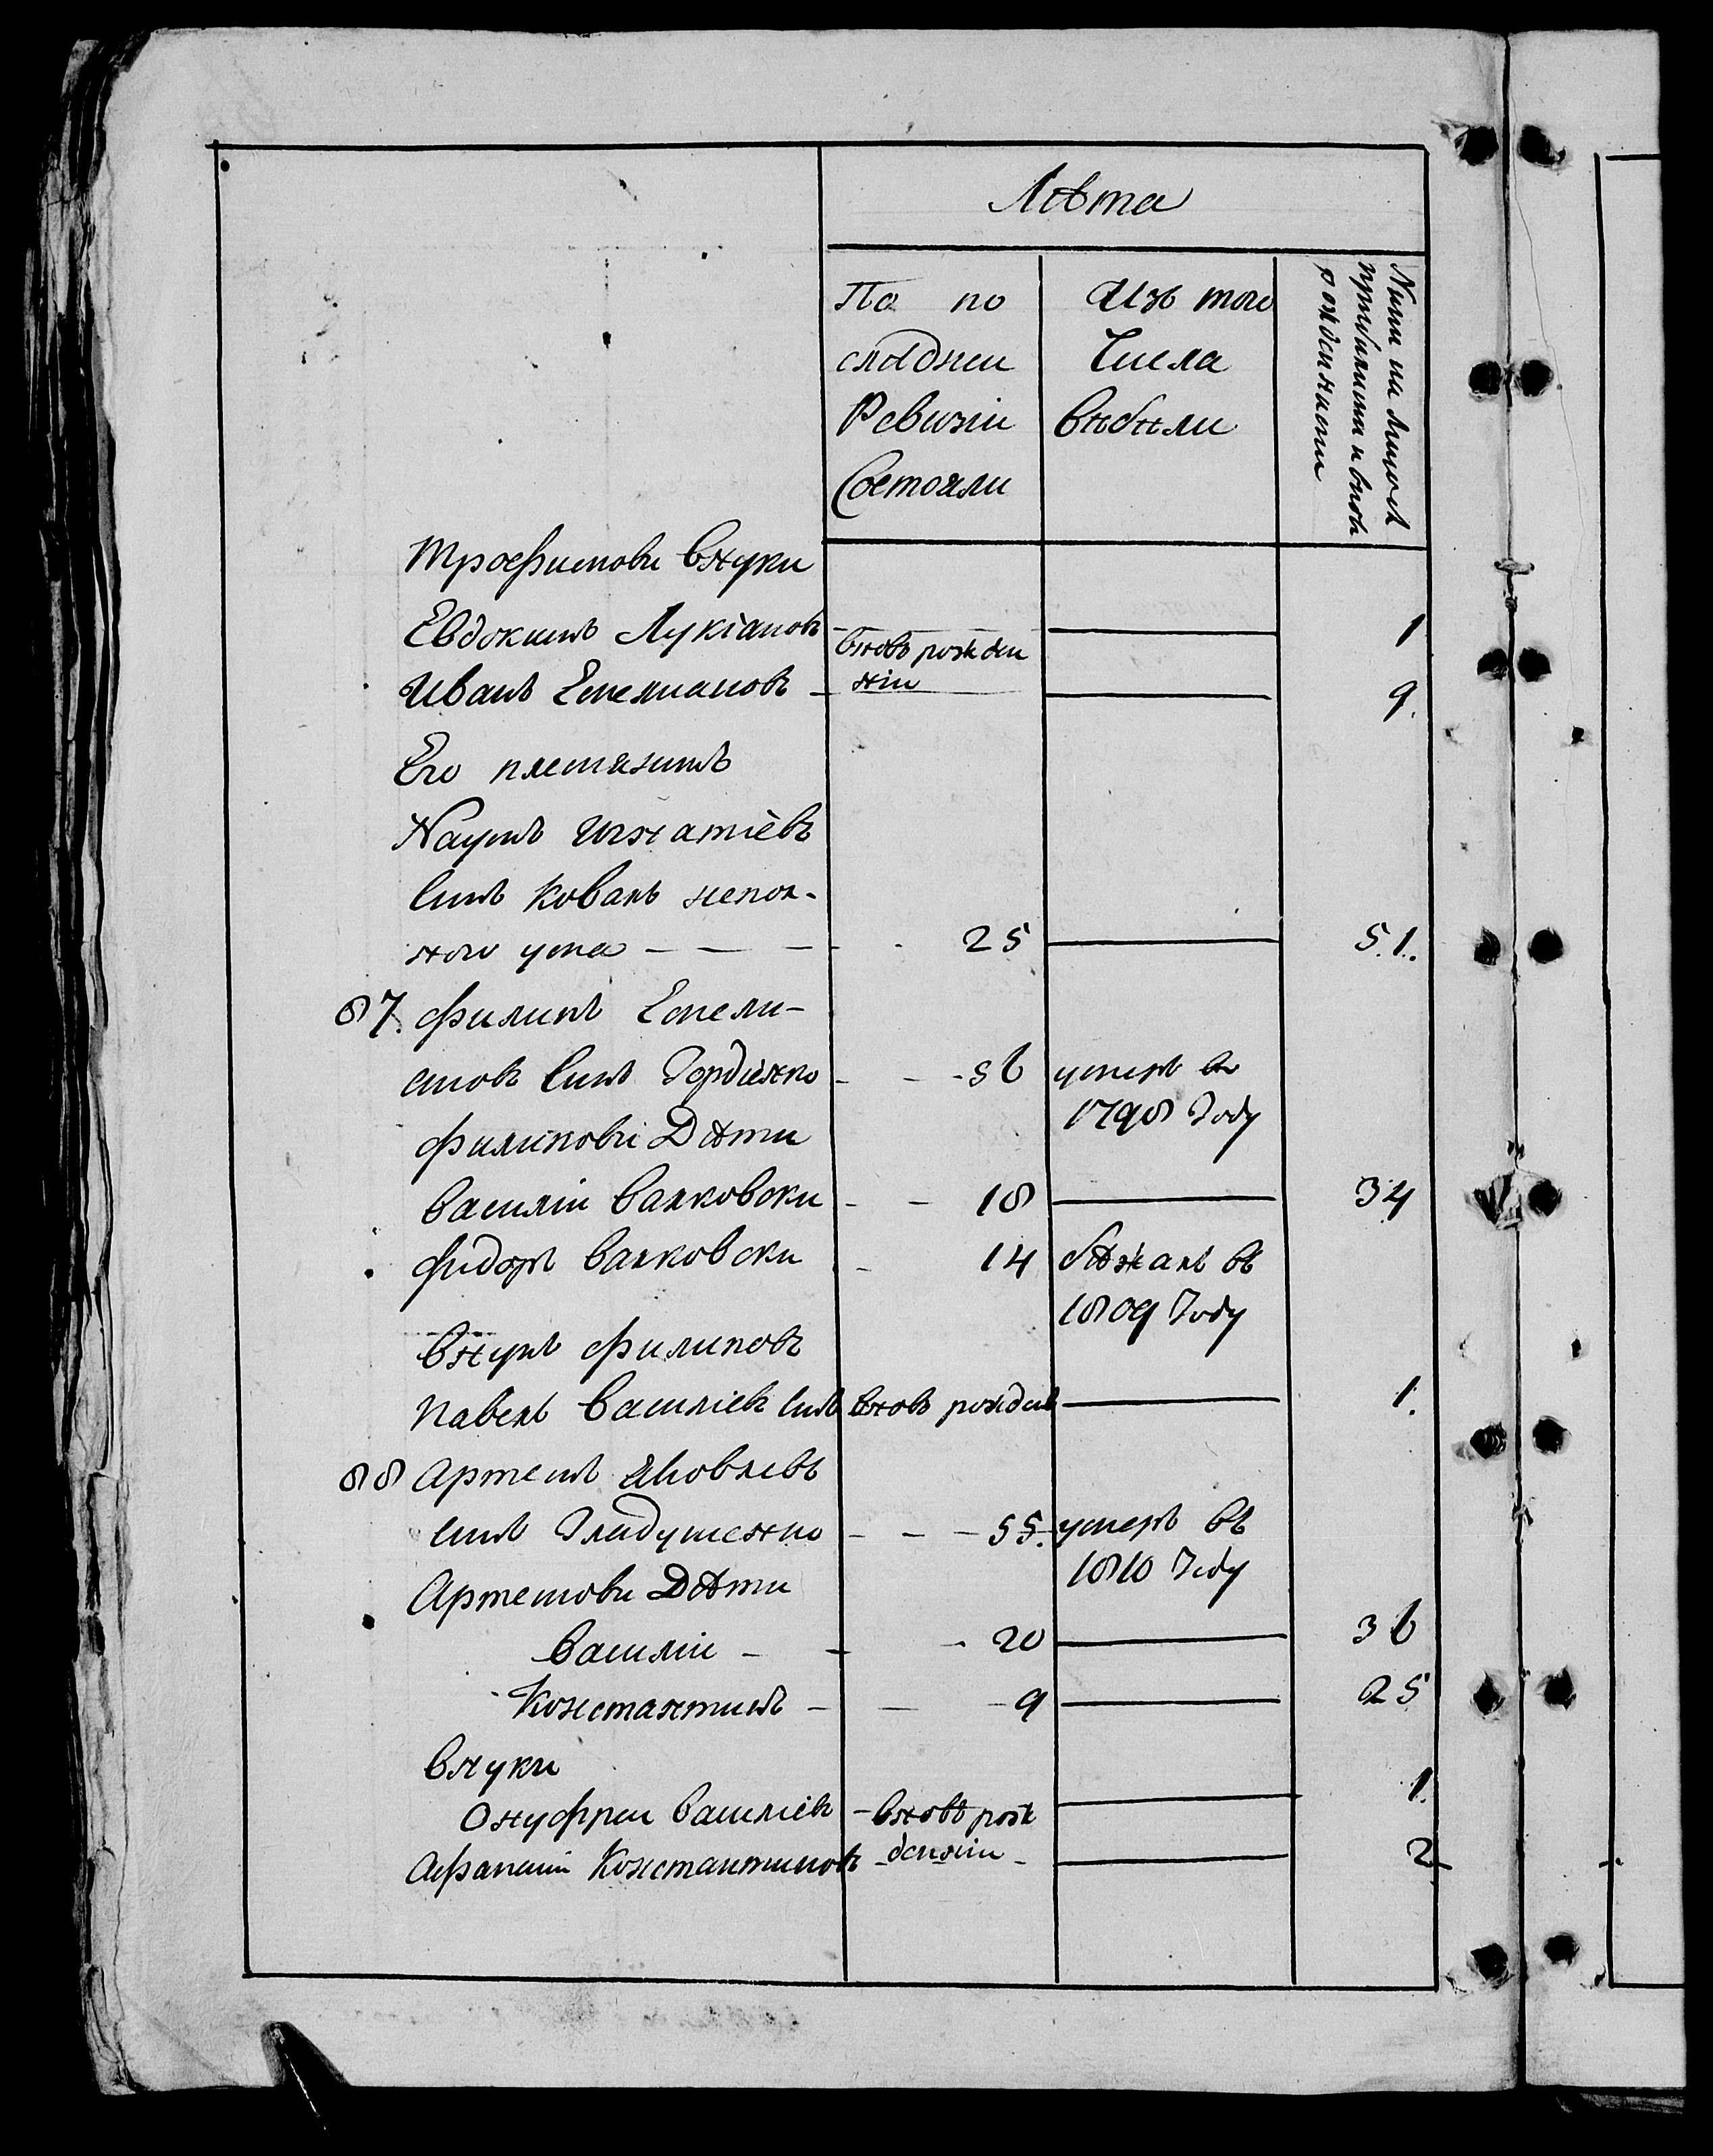 Лѣта
По по
слѣднеи
Ревизіи
Состояли
Изъ того
Числа
выбыли
рожденными
Трофимовы внуки
Евдокимъ Лукіановъ — 1
вновь рожден
ніи
Иванъ Емелиановъ — 9.
Его племянникъ
Наумъ Игнатіевъ
сынъ Коваль непол-
ного ума — — — 25 — 51.
87. Филипъ Емели-
ановъ сынъ Гордіенко - - - 56 умеръ въ
1798 Году
Филиповы Дѣти
Василіи Валковски - - 18 — 34
Фидоръ Валковски - 14 бѣжалъ въ
1809 Году
Внукъ Филиповъ
Павелъ Василіевъ сынъ вновь рожденъ — 1.
88 Артемъ Яковлевъ
сынъ Гладушенко - - - 55. умеръ въ
1810 Году
Артемовы Дѣти
Василіи - - - 20 — 36
Константинъ - — - 9 — 25
внуки
Онуфреи Василіевъ - вновь рож — 1.
Афанасіи Константиновъ - денніи - — 2